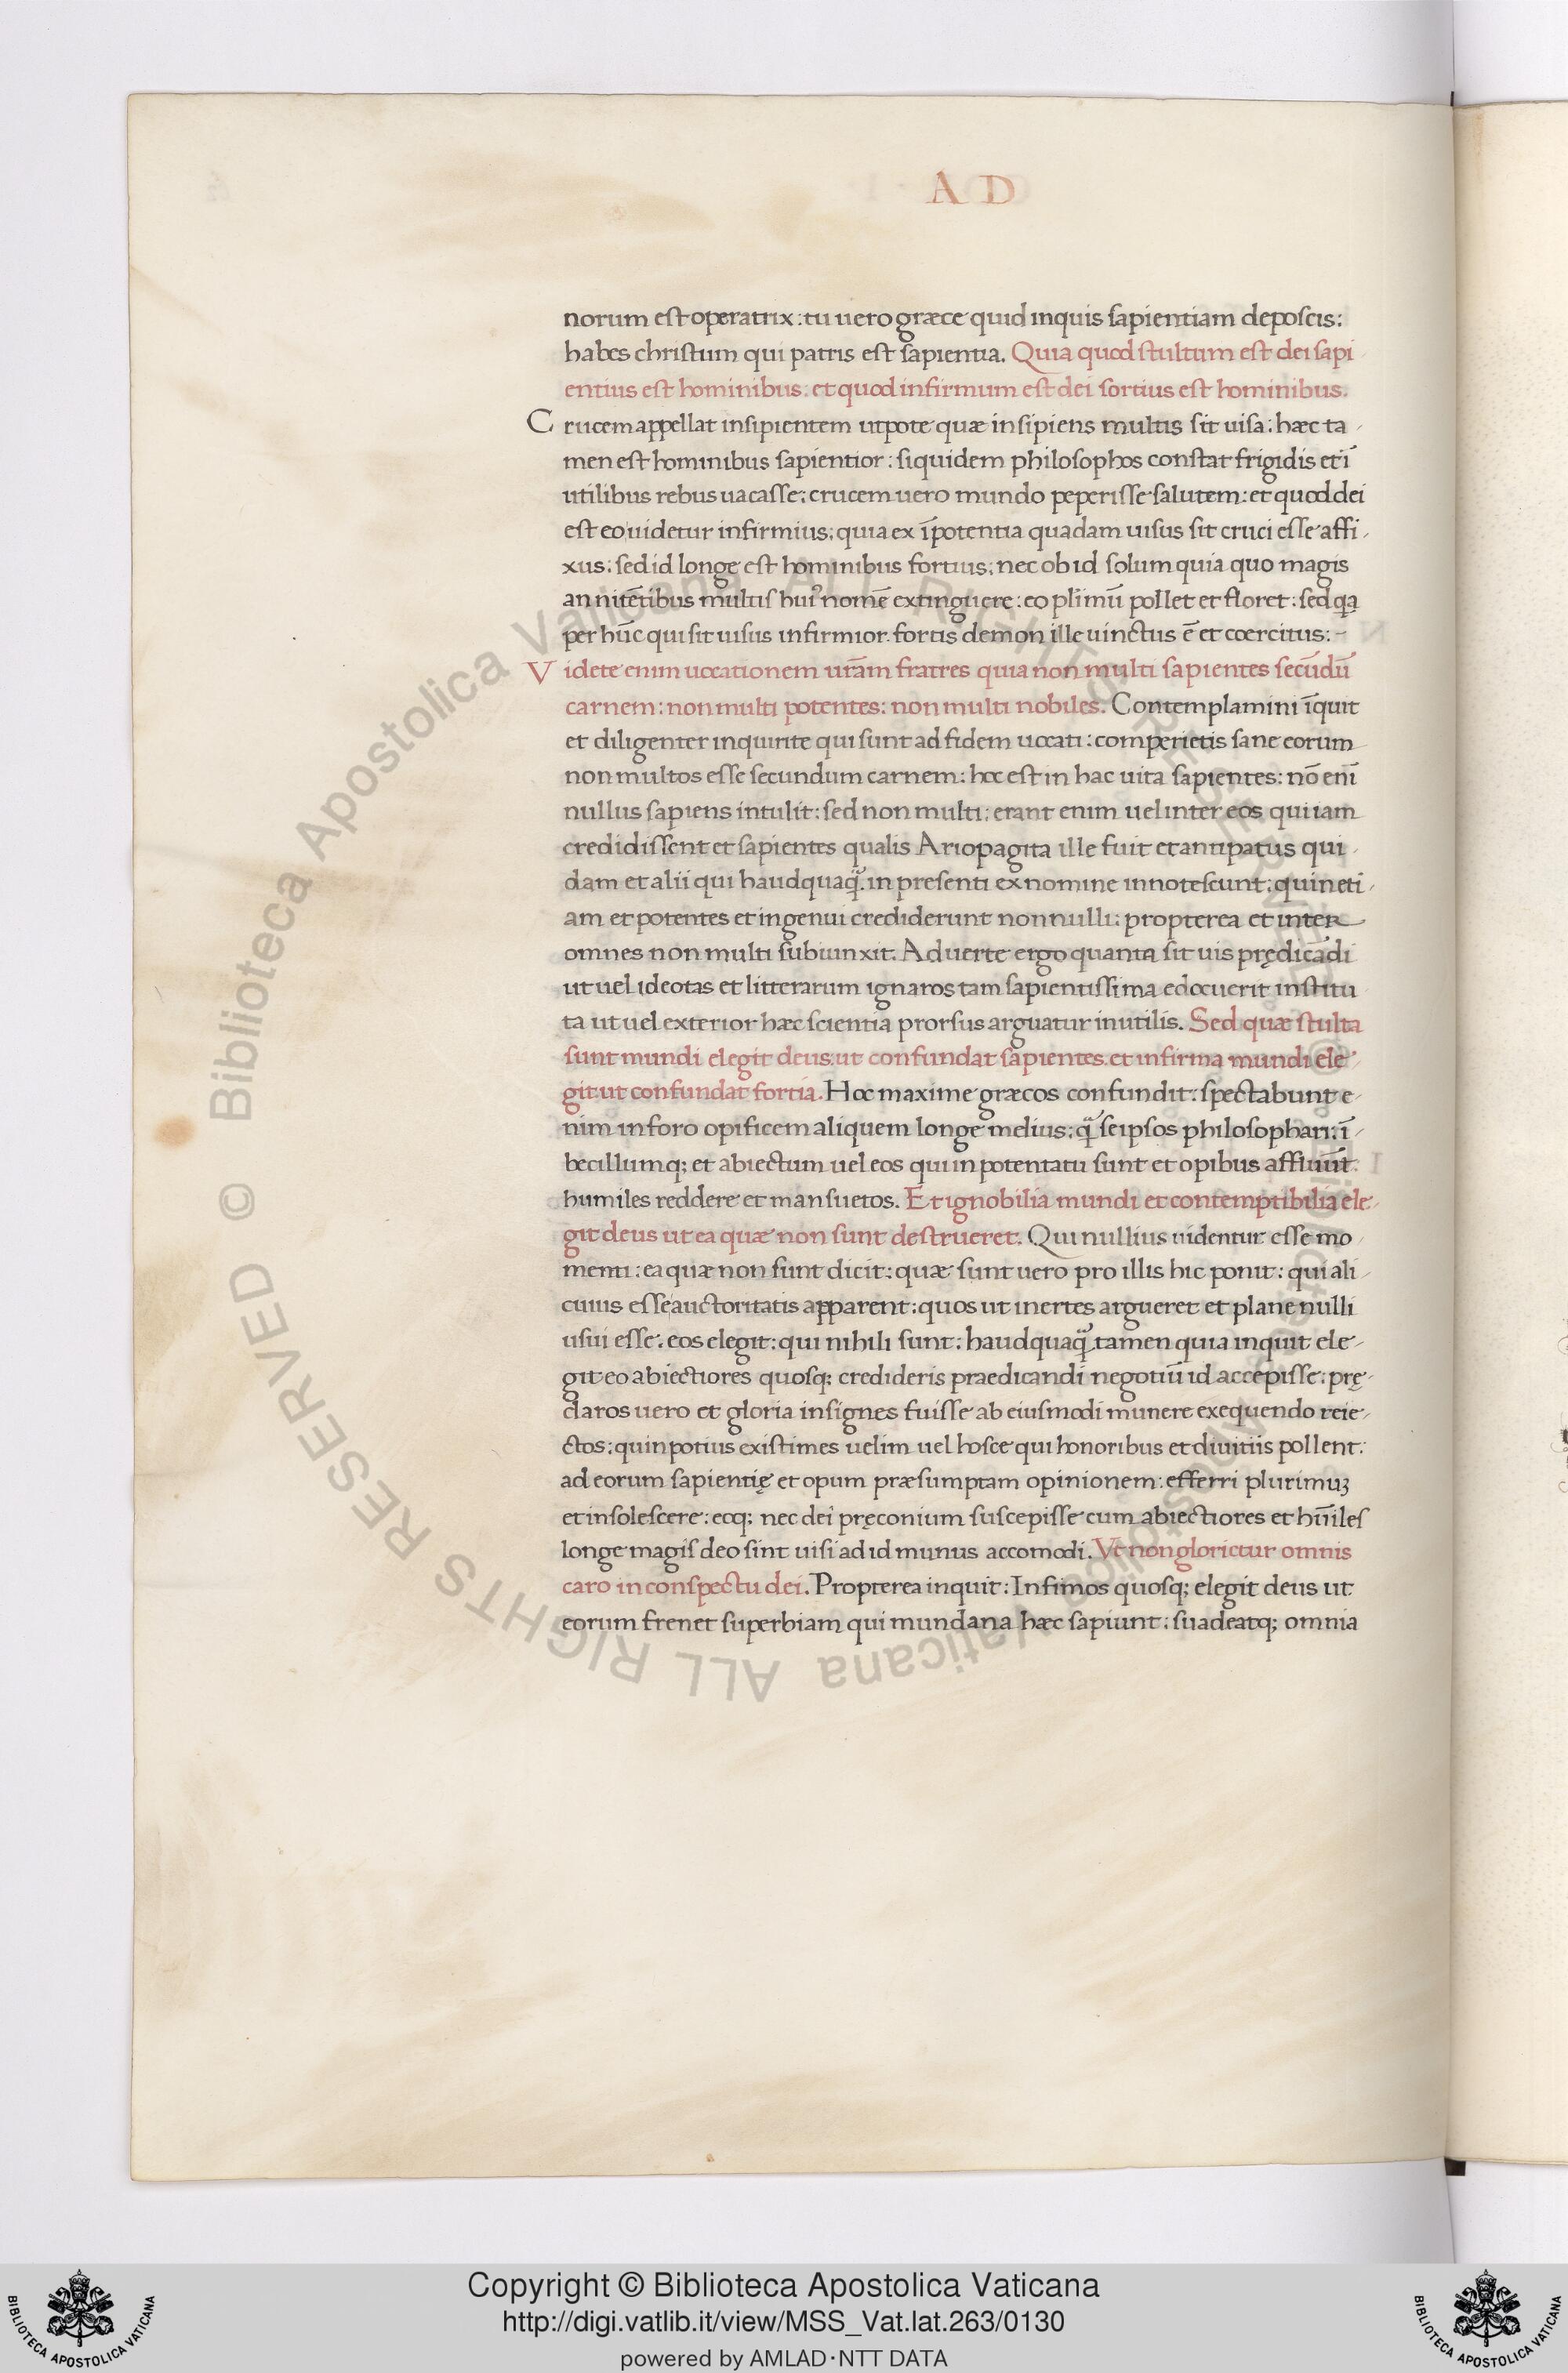 A D
norum est operatrix: tu uero græce quid inquis sapientiam deposcis:
habes christum qui patris est sapientia. Quia quod stultum est dei sapi
entius est hominibus. et quod infirmum est dei fortius est hominibus.
Crucem appellat insipientem utpote quæ insipiens multis sit uisa: hæc ta
men est hominibus sapientior: siquidem philosophos constat frigidis et ī
utilibus rebus uacasse; crucem uero mundo peperisse salutem: et quod dei
est eo uidetur infirmius; quia ex īpotentia quadam uisus sit cruci esse affi
xus: sed id longe est hominibus fortius; nec ob id solum quia quo magis
annitētibus multis huiꝰ nomē extinguere: eo plīmū pollet et floret: sed q̄a
per hūc qui sit uisus infirmior. fortis demon ille uinctus ē et coercitus:
Videte enim uocationem ur̄am fratres quia non multi sapientes secūdū
carnem: non multi potentes: non multi nobiles. Contemplamini īquit
et diligenter inquirite qui sunt ad fidem uocati: comperietis sane eorum
non multos esse secundum carnem: hoc est in hac uita sapientes: nō enī
nullus sapiens intulit: sed non multi; erant enim uel inter eos qui iam
credidissent et sapientes qualis Ariopagita ille fuit et antipatus qui
dam et alii qui haudquaq̄. in presenti ex nomine innotescunt; quin eti
am et potentes et ingenui crediderunt nonnulli: propterea et inter
omnes non multi subiunxit. Aduerte ergo quanta sit uis prędicādi
ut uel ideotas et litterarum ignaros tam sapientissima edocuerit institu
ta ut uel exterior hæc scientia prorsus arguatur inutilis. Sed quæ stulta
sunt mundi elegit deus: ut confundat sapientes. et infirma mundi ele
git ut confundat fortia. Hoc maxime græcos confundit: spectabunt e
nim in foro opificem aliquem longe melius; q̄ seipsos philosophari: ī
becillumq; et abiectum uel eos qui in potentatu sunt et opibus affluūt
humiles reddere et mansuetos. Et ignobilia mundi et contemptibilia ele
git deus ut ea quæ non sunt destrueret. Qui nullius uidentur esse mo
menti: ea quæ non sunt dicit: quæ sunt uero pro illis hic ponit: qui ali
cuius esse auctoritatis apparent: quos ut inertes argueret et plane nulli
usui esse: eos elegit: qui nihili sunt: haudquaq̄ tamen quia inquit ele
git eo abiectiores quosq; credideris praedicandi negotiū id accepisse: prę
claros uero et gloria insignes fuisse ab eiusmodi munere exequendo reie
ctos; quin potius existimes uelim uel hosce qui honoribus et diuitiis pollent:
ad eorum sapientię et opum præsumptam opinionem: efferri plurimuꝫ
et insolescere: eoq; nec dei pręconium suscepisse cum abiectiores et hūiles
longe magis deo sint uisi ad id munus accomodi. Vt non glorietur omnis
caro in conspectu dei. Propterea inquit: Infimos quosq; elegit deus ut
eorum frenet superbiam qui mundana hæc sapiunt: suadeatq; omnia
© Biblioteca Apostolica Vaticana ALL RIGHTS RESERVED © Biblioteca Apostolica Vaticana ALL RIGHTS RESERVED
Copyright © Biblioteca Apostolica Vaticana
http://digi.vatlib.it/view/MSS_Vat.lat.263/0130
powered by AMLAD·NTT DATA
BIBLIOTECA APOSTOLICA VATICANA
BIBLIOTECA APOSTOLICA VATICANA